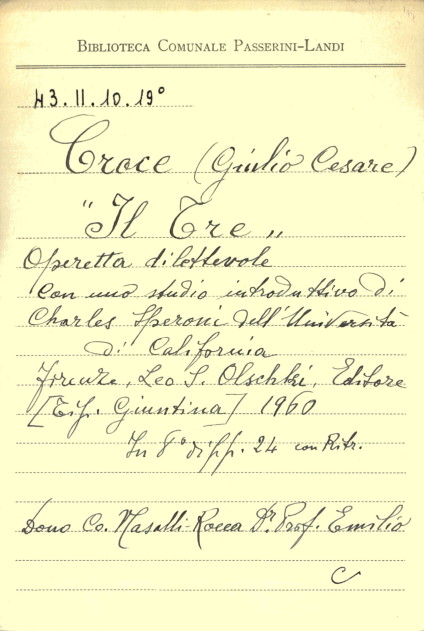 BIBLIOTECA COMUNALE PASSERINI-LANDI
43.II.10.19°
Croce (Giulio Cesare)
"Il Tre"
Operetta dilettevole
con uno studio introduttivo di
Charles Speroni dell'Università
di California
Firenze, Leo S. Olschki, Editore
[Tip. Giuntina] 1960
In 8° di pp. 24 con Ritr.
Dono Co. Nasalli-Rocca Dr. Prof. Emilio
C